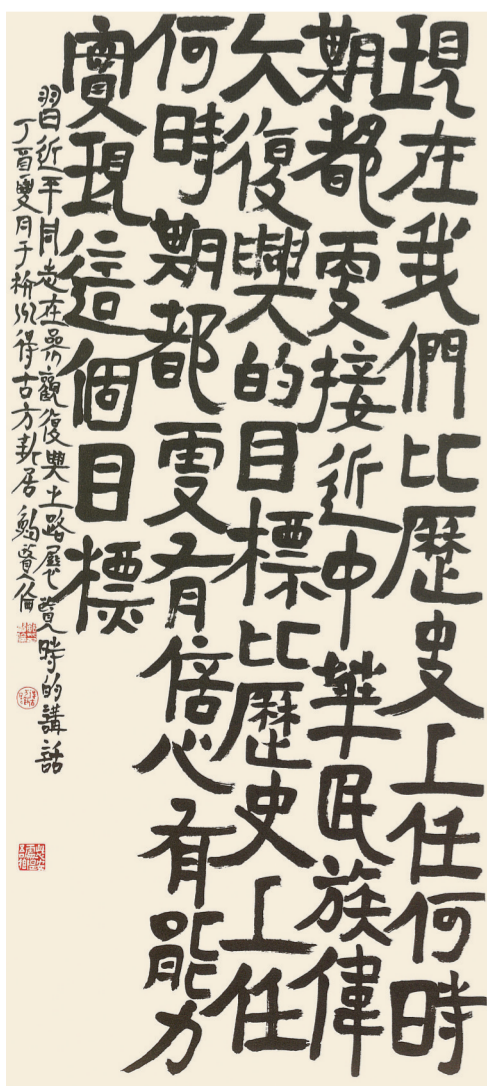 現在我們比歷史上任何時
期都更接近中華民族偉
大復興的目標比歷史上任
何時期都更有信心有能力
實現這個目標
習近平同志在參觀復興之路展覽時的講話
丁酉夏月于得古方軒居